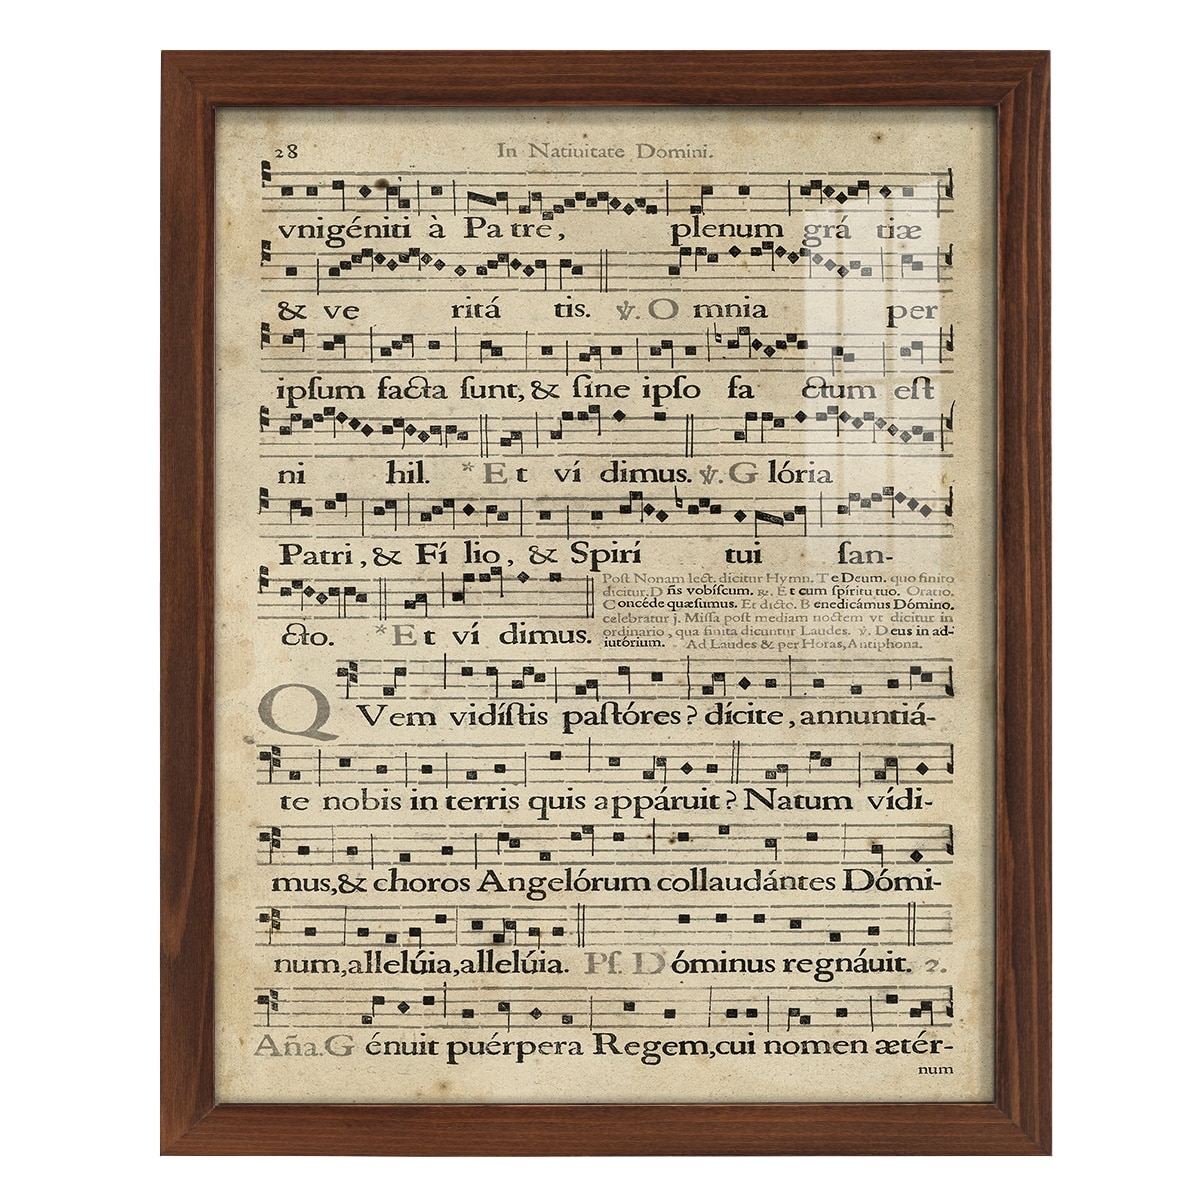 28
In Natiuitate Domini.
vnigéniti à Pa tre, plenum grá tiæ
& ve ritá tis. ℣. O mnia per
ipſum facta ſunt, & ſine ipſo fa ctum eſt
ni hil. * Et ví dimus. ℣. G lória
Patri, & Fí lio, & Spirí tui ſan-
cto. * Et ví dimus.
Poſt Nonam lect. dicitur Hymn. Te Deum. quo finito
dicitur. D ñs vobíſcum. ℟. Et cum ſpíritu tuo. Oratio.
Concéde quæſumus. Et dicto. B enedicámus Dómino.
celebratur j. Miſſa poſt mediam noctem vt dicitur in
ordinario, qua finita dicuntur Laudes. ℣. Deus in ad-
iutórium. Ad Laudes & per Horas, Antiphona.
QVem vidíſtis paſtóres? dícite, annuntiá-
te nobis in terris quis appáruit? Natum vídi-
mus, & choros Angelórum collaudántes Dómi-
num, allelúia, allelúia. Pſ. Dóminus regnáuit. 2.
Aña. G énuit puérpera Regem, cui nomen ætér-
num